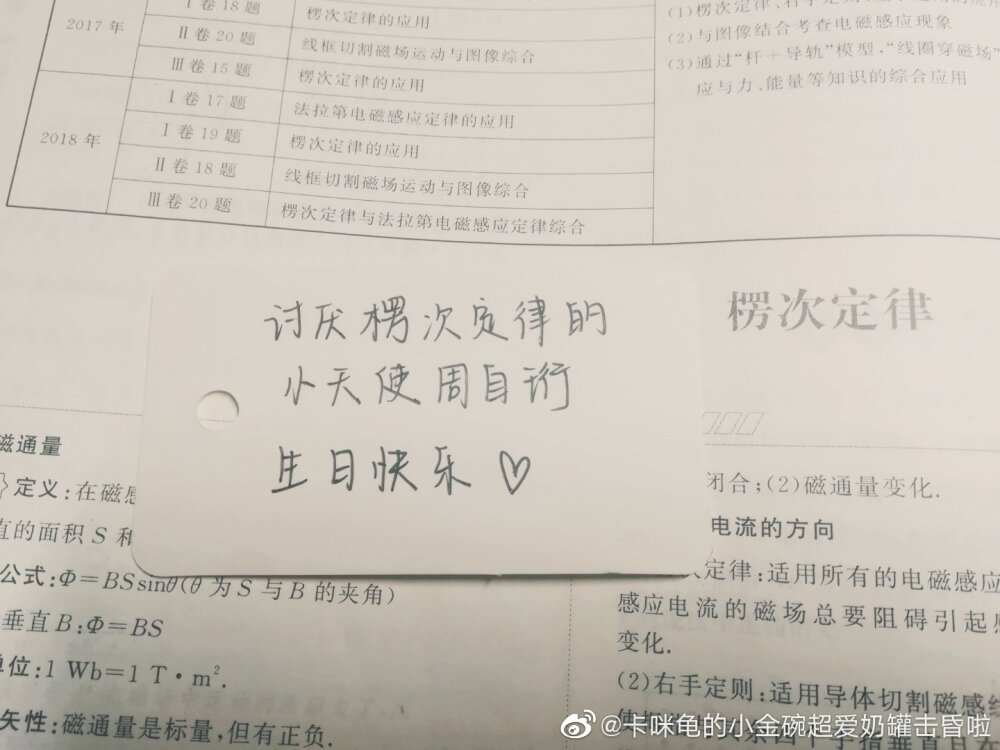 2017 年
Ⅰ 卷 18 题
楞次定律的应用
Ⅱ 卷 20 题
线框切割磁场运动与图像综合
Ⅲ 卷 15 题
楞次定律的应用
2018 年
Ⅰ 卷 17 题
法拉第电磁感应定律的应用
Ⅰ 卷 19 题
楞次定律的应用
Ⅱ 卷 18 题
线框切割磁场运动与图像综合
Ⅲ 卷 20 题
楞次定律与法拉第电磁感应定律综合
(1)楞次定律、右手定则
(2)与图像结合考查电磁感应现象
(3)通过“杆+导轨”模型,“线圈穿磁场”
应与力、能量等知识的综合应用
讨厌楞次定律的
小天使周自珩
生日快乐♡
楞次定律
磁通量
定义:在磁感
直的面积 S 和
公式:Φ=BSsinθ(θ 为 S 与 B 的夹角)
垂直B:Φ=BS
单位:1 Wb=1 T·m².
矢性:磁通量是标量,但有正负.
闭合;(2)磁通量变化.
电流的方向
定律:适用所有的电磁感应
感应电流的磁场总要阻碍引起感
变化.
(2)右手定则:适用导体切割磁感线
@卡咪龟的小金碗超爱奶罐击昏啦